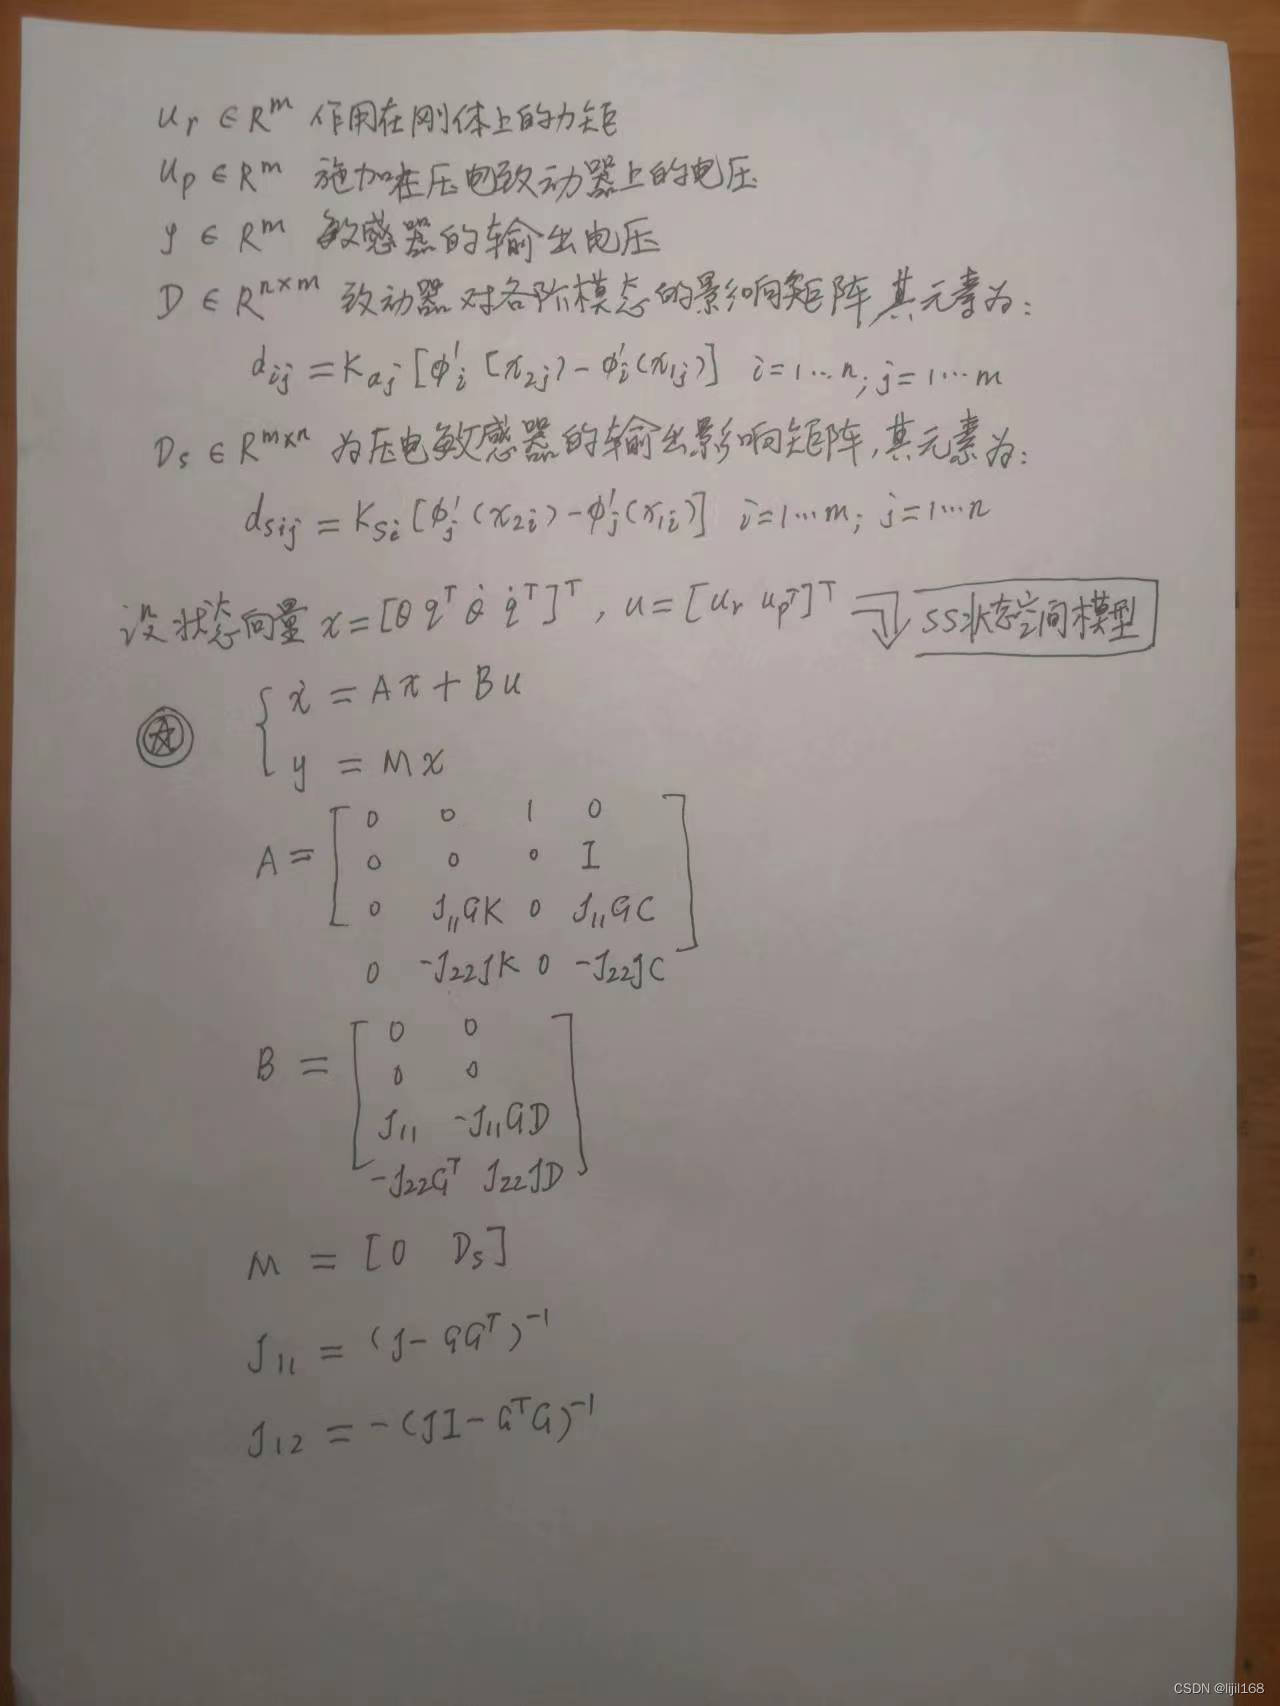 u_r ∈ R^m 作用在刚体上的力矩
u_p ∈ R^m 施加在压电致动器上的电压
y ∈ R^m 敏感器的输出电压
D ∈ R^{n×m} 致动器对各阶模态的影响矩阵,其元素为:
d_{ij} = K_{aj} [ϕ'_i [x_{2j}) - ϕ'_i(x_{1j})] i=1…n; j=1…m
D_s ∈ R^{m×n} 为压电敏感器的输出影响矩阵,其元素为:
d_{sij} = K_{si} [ϕ'_j (x_{2i}) - ϕ'_j(x_{1i})] i=1…m; j=1…n
设状态向量 x = [θ q^T θ̇ q̇^T]^T, u = [u_r u_p^T]^T ⇒ SS状态空间模型
ẋ = Ax + Bu
y = Mx
A = [0 0 1 0
0 0 0 I
0 J_{11}GK 0 J_{11}GC]
0 -J_{22}JK 0 -J_{22}JC
B = [0 0
0 0
J_{11} -J_{11}GD
-J_{22}G^T J_{22}JD]
M = [0 D_s]
J_{11} = (J - GG^T)^{-1}
J_{12} = -(JI - G^TG)^{-1}
CSDN @lijil168